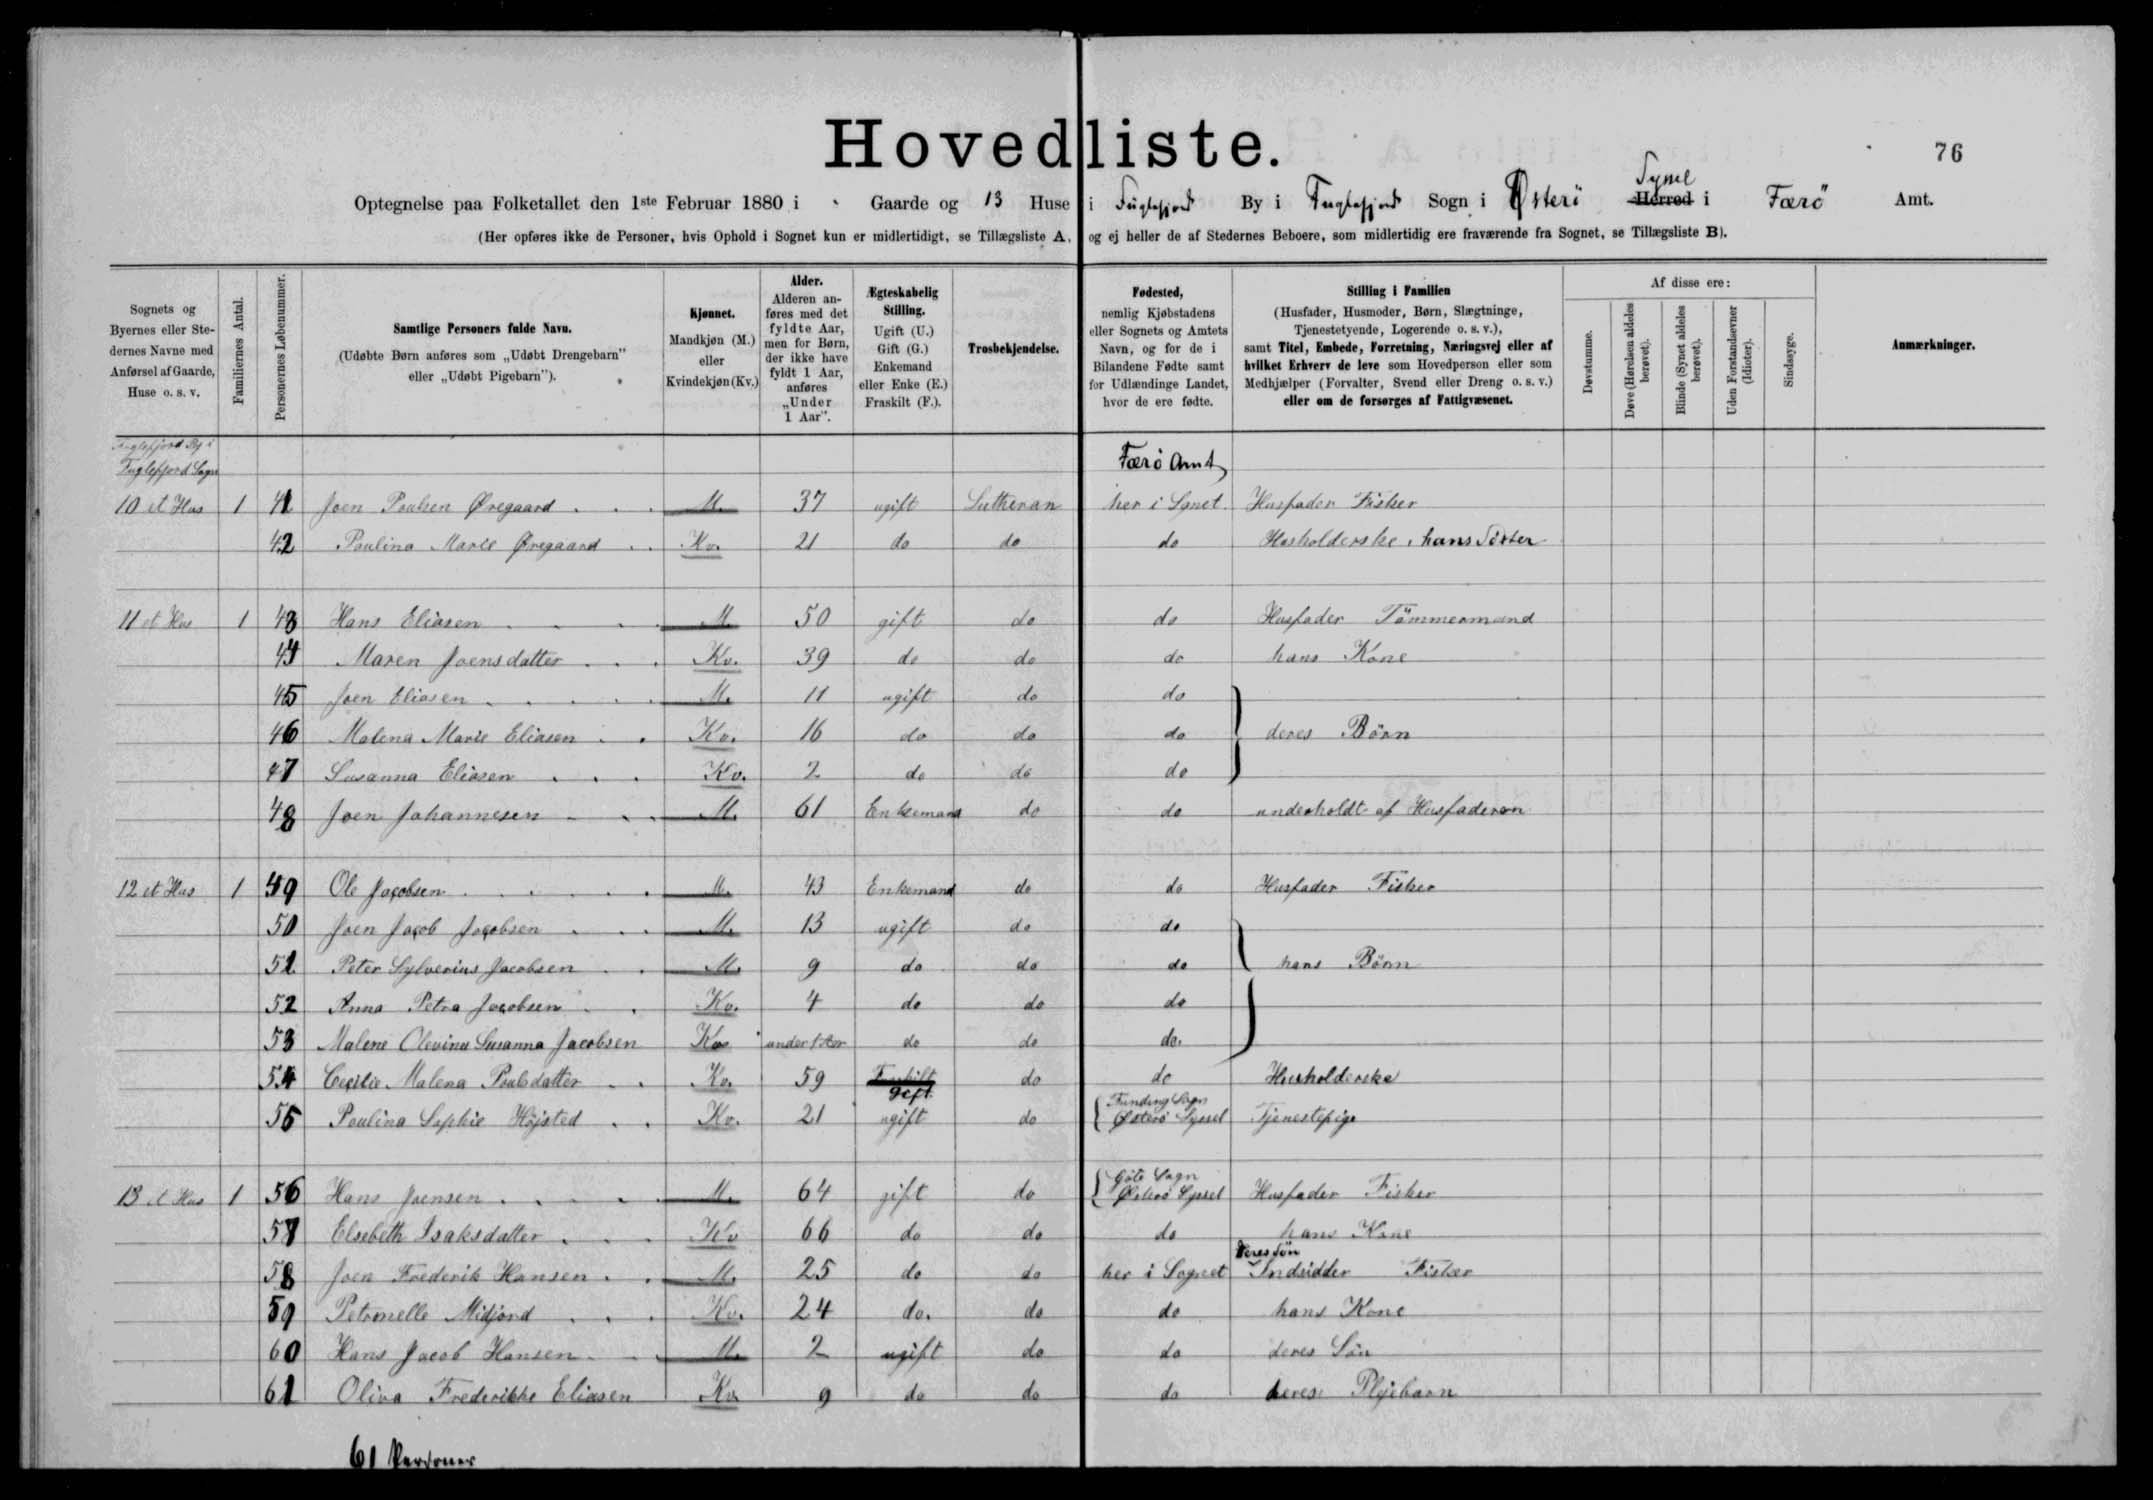 Hovedliste.
76
Optegnelse paa Folketallet den 1ste Februar 1880 i Gaarde og 13 Huse i Fuglefjord By i Fuglefjord Sogn i Østerö Syssel Herred i Færö Amt.
(Her opføres ikke de Personer, hvis Ophold i Sognet kun er midlertidigt, se Tillægsliste A, og ej heller de af Stedernes Beboere, som midlertidig ere fraværende fra Sognet, se Tillægsliste B).
Sognets og Byernes eller Stedernes Navne med Anførsel af Gaarde, Huse o. s. v.
Familiernes Antal.
Personernes Løbenummer.
Samtlige Personers fulde Navn. (Udøbte Børn anføres som „Udøbt Drengebarn" eller „Udøbt Pigebarn").
Kjønnet. Mandkjøn (M.) eller Kvindekjøn (Kv.)
Alder. Alderen anføres med det fyldte Aar, men for Børn, der ikke have fyldt 1 Aar, anføres „Under 1 Aar".
Ægteskabelig Stilling. Ugift (U.) Gift (G.) Enkemand eller Enke (E.) Fraskilt (F.).
Trosbekjendelse.
Fødested, nemlig Kjøbstadens eller Sognets og Amtets Navn, og for de i Bilandene Fødte samt for Udlændinge Landet, hvor de ere fødte.
Stilling i Familien (Husfader, Husmoder, Børn, Slægtninge, Tjenestetyende, Logerende o. s. v.), samt Titel, Embede, Forretning, Næringsvej eller af hvilket Erhverv de leve som Hovedperson eller som Medhjælper (Forvalter, Svend eller Dreng o. s. v.) eller om de forsørges af Fattigvæsenet.
Af disse ere:
Døvstumme.
Døve (Hørelsen aldeles berøvet).
Blinde (Synet aldeles berøvet).
Uden Forstandsevner (Idioter).
Sindssyge.
Anmærkninger.
Fuglefjord By i
Fuglefjord Sogn Færö Amt
10 et Hus 1 41 Joen Poulsen Øregaard M. 37 ugift Lutheran her i Sgnet. Husfader Fisker
42 Paulina Marie Øregaard Kv. 21 do do do Husholderske, hans Söster
11 et Hus 1 43 Hans Eliasen M. 50 gift do do Husfader Tömmermand
44 Maren Joensdatter Kv. 39 do do do hans Kone
45 Joen Eliasen M. 11 ugift do do
46 Malena Marie Eliasen Kv. 16 do do do deres Börn
47 Susanna Eliasen Kv. 2 do do do
48 Joen Johannesen M. 61 Enkemand do do underholdt af Husfaderen
12 et Hus 1 49 Ole Jacobsen M. 43 Enkemand do do Husfader Fisker
50 Joen Jacob Jacobsen M. 13 ugift do do
51 Peter Sylverius Jacobsen M. 9 do do do hans Börn
52 Anna Petra Jacobsen Kv. 4 do do do
53 Malene Olevina Susanna Jacobsen Kv. under 1 Aar do do do.
54 Cecilie Malena Poulsdatter Kv. 59 Fraskilt gift do do Husholderske
55 Paulina Sophie Højsted Kv. 21 ugift do Funding Sogn Østerö Syssel Tjenestepige
13 et Hus 1 56 Hans Joensen M. 64 gift do Göte Sogn Østerö Syssel Husfader Fisker
57 Elsebeth Isaksdatter Kv 66 do do do hans Kone
58 Joen Frederik Hansen M. 25 do do her i Sognet deres Sön Indsidder Fisker
59 Petronelle Midjord Kv. 24 do. do do hans Kone
60 Hans Jacob Hansen M. 2 ugift do do deres Sön
61 Oliva Frederikke Eliasen Kv. 9 do do do deres Plejebarn
61 Personer